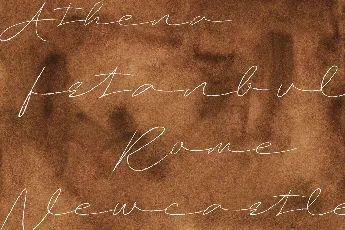 Athena
Istanbul
Rome
Newcastle